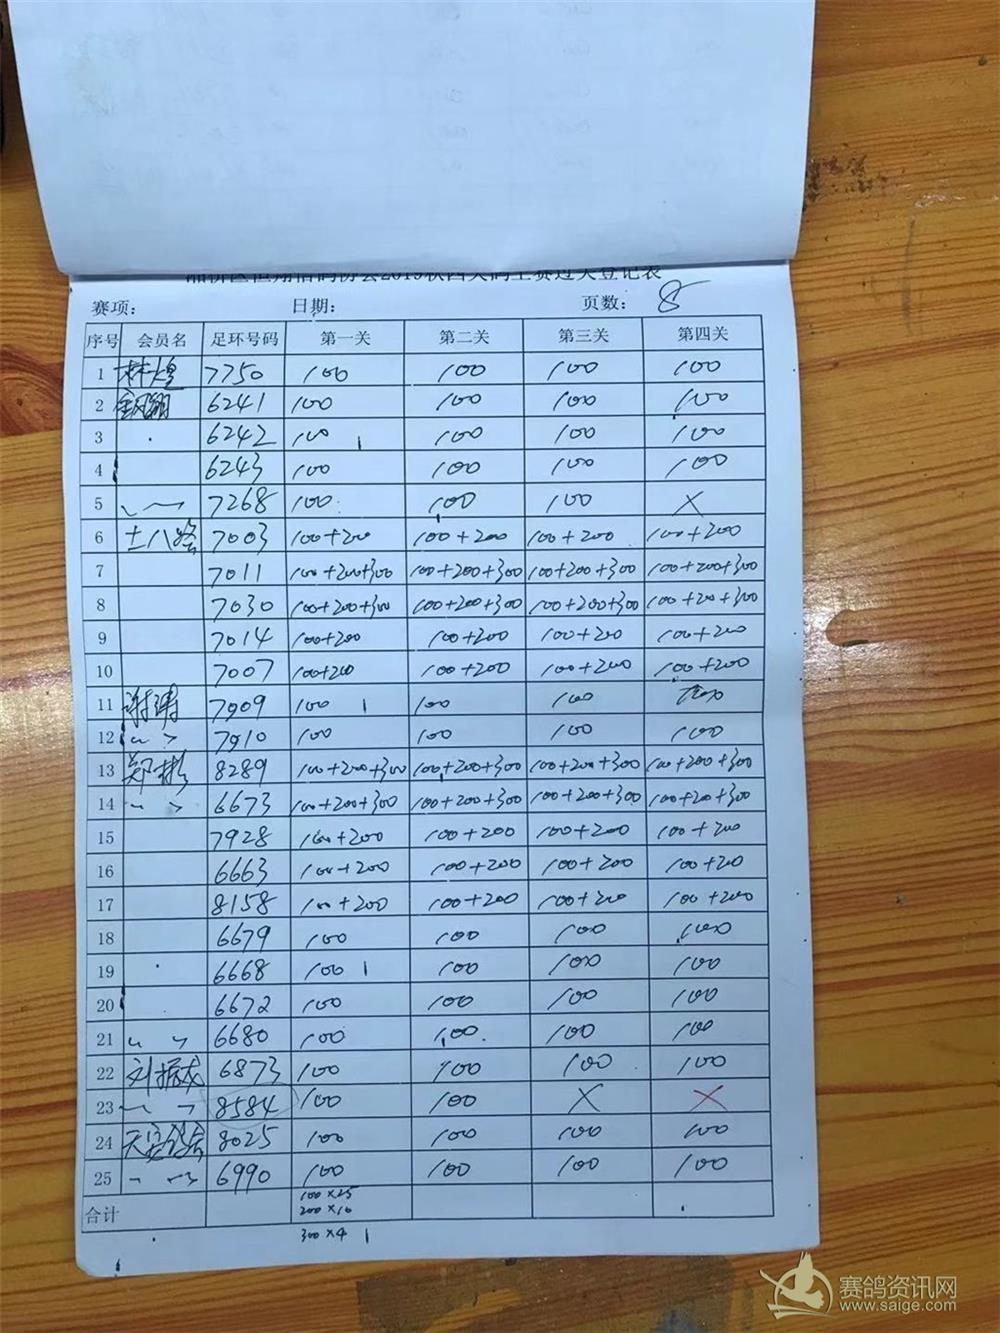 2019秋四关鸽王赛过关登记表
赛项： 日期： 页数： 8
序号 会员名 足环号码 第一关 第二关 第三关 第四关
1 林煌 7750 100 100 100 100
2 6241 100 100 100 100
3 6242 100 100 100 100
4 6243 100 100 100 100
5 7268 100 100 100 ×
6 土八路 7003 100+200 100+200 100+200 100+200
7 7011 100+200+300 100+200+300 100+200+300 100+200+300
8 7030 100+200+300 100+200+300 100+200+300 100+200+300
9 7014 100+200 100+200 100+200 100+200
10 7007 100+200 100+200 100+200 100+200
11 谢涛 7909 100 100 100 100
12 7910 100 100 100 100
13 郑彬 8289 100+200+300 100+200+300 100+200+300 100+200+300
14 6673 100+200+300 100+200+300 100+200+300 100+200+300
15 7928 100+200 100+200 100+200 100+200
16 6663 100+200 100+200 100+200 100+200
17 8158 100+200 100+200 100+200 100+200
18 6679 100 100 100 100
19 6668 100 100 100 100
20 6672 100 100 100 100
21 6680 100 100 100 100
22 刘振龙 6873 100 100 100 100
23 8584 100 100 × ×
24 8025 100 100 100 100
25 6990 100 100 100 100
合计 100×25
200×10
300×4
赛鸽资讯网
www.saige.com